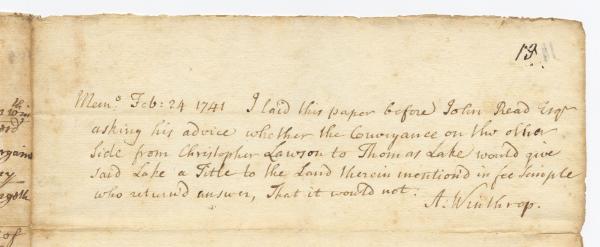 13
Memo. Feb: 24 1741 I laid this paper before John Read Esqr
asking his advice whether the Conveyance on the other
Side from Christopher Lawson to Thomas Lake would give
said Lake a Title to the Land therein mention'd in fee Simple
who return'd answer, That it would not.
A. Winthrop.
of